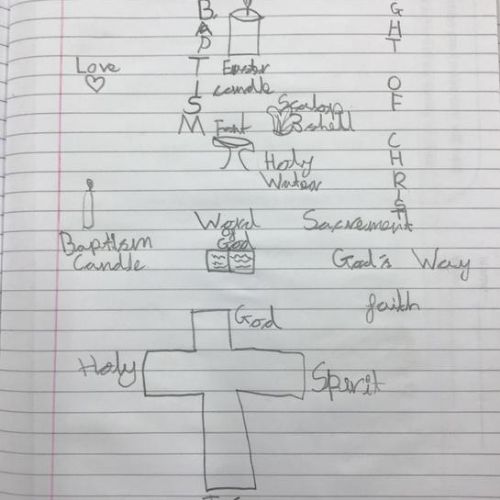 BAPTISM
GHT OF CHRIST
Love
Easter
candle
Scalop
shell
Font
Holy
Water
Baptism
Candle
Word
of
God
Sacrement
God's Way
faith
God
Holy
Spirit